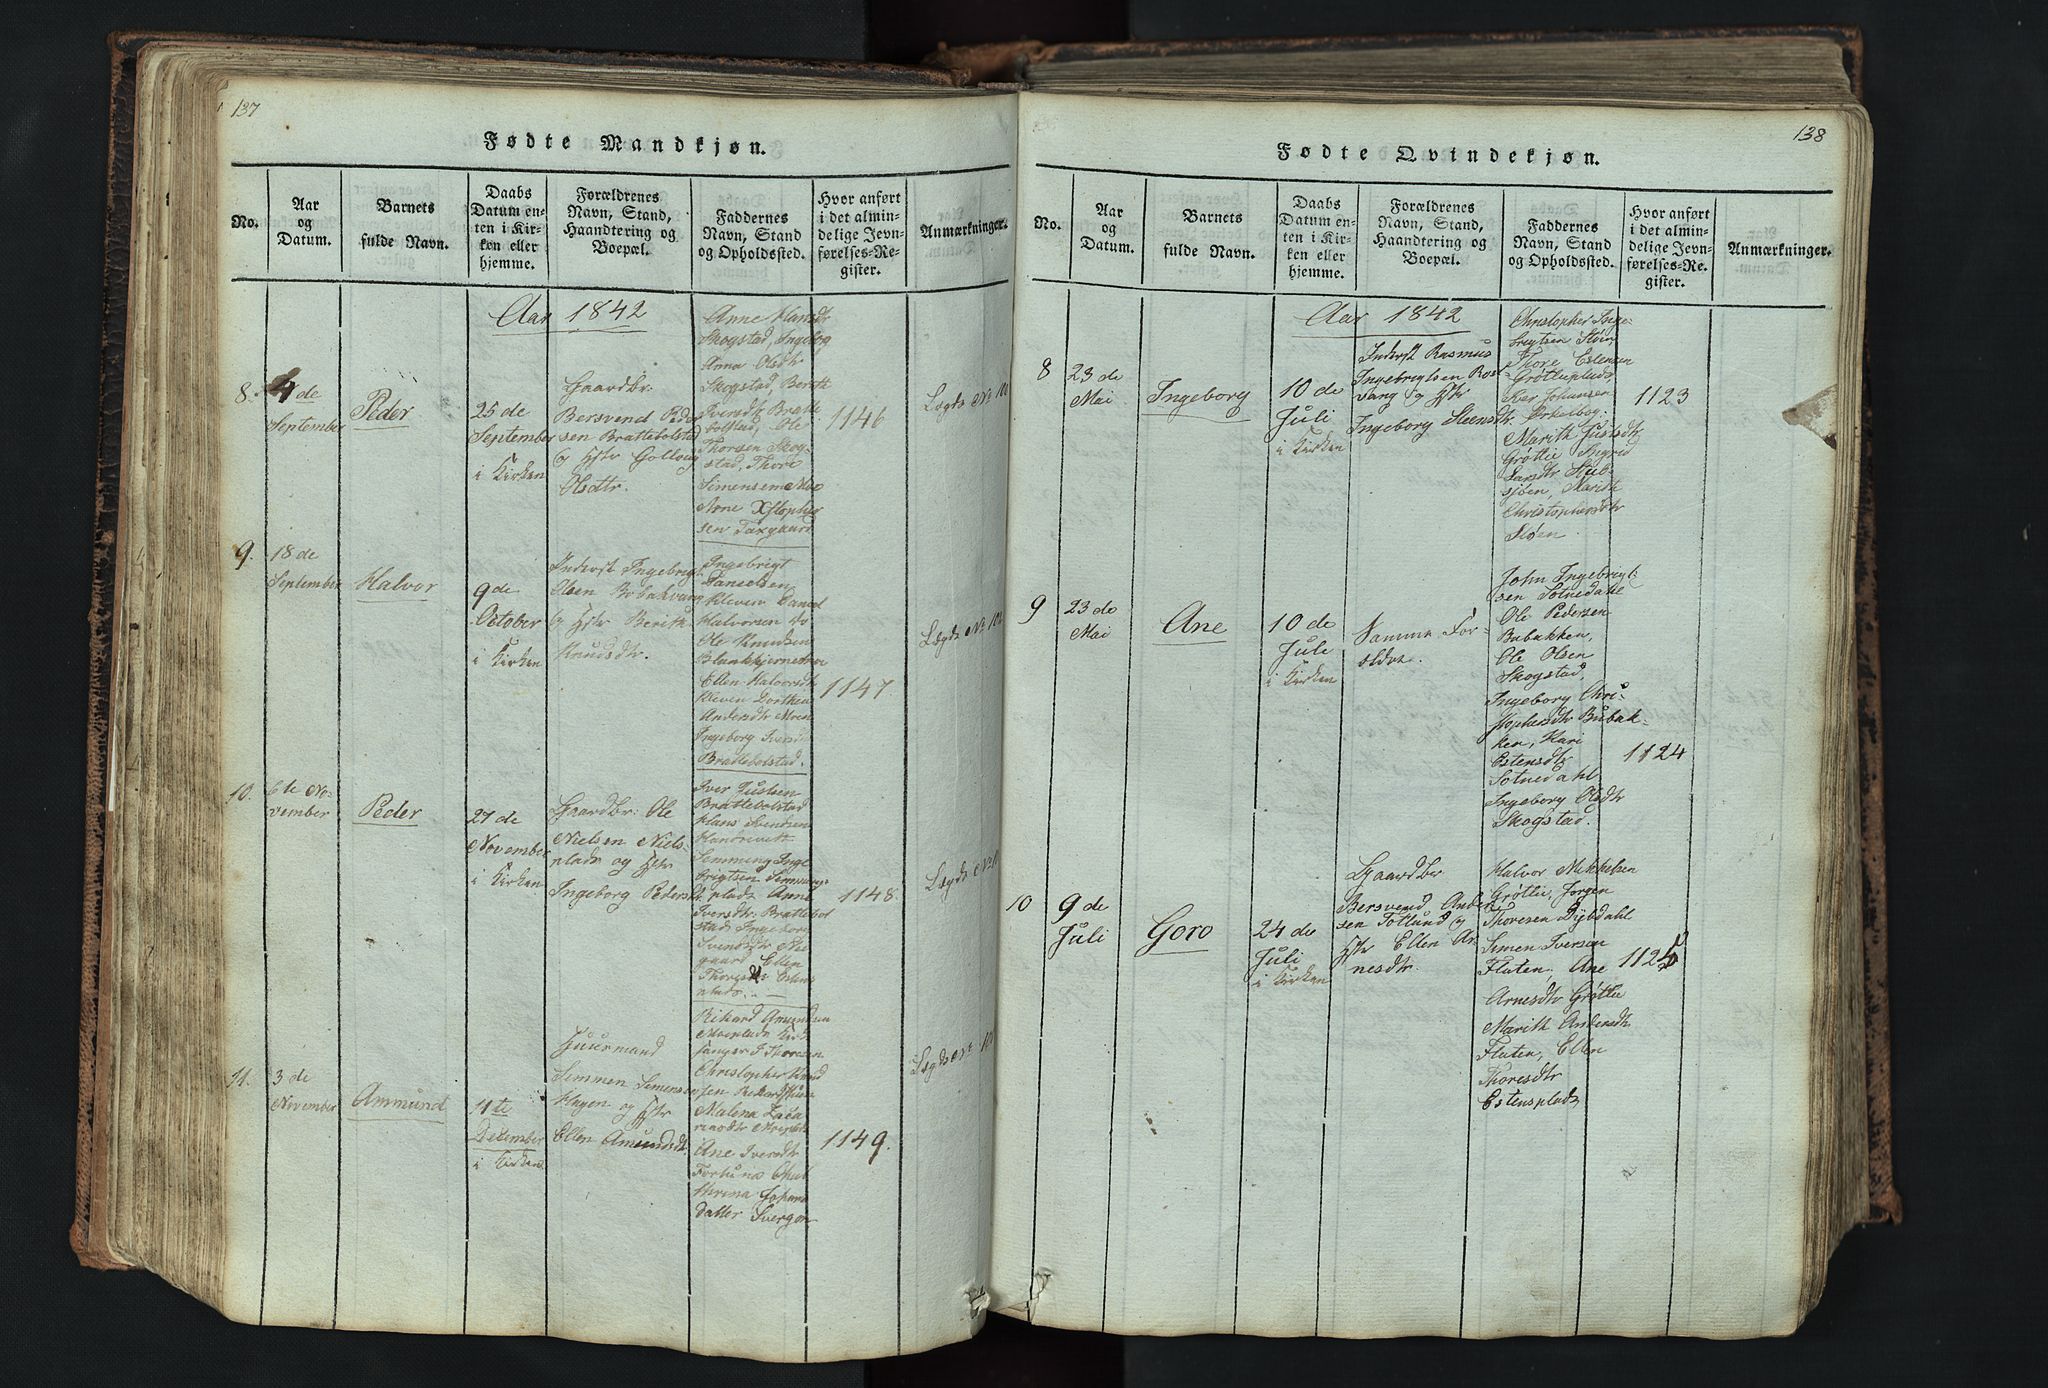 137
Fødte Mandkjøn.
No.
Aar
og
Datum.
Barnets
fulde Navn.
Daabs
Datum en-
ten i Kir-
ken eller
hjemme.
Forældrenes
Navn, Stand,
Haandtering og
Boepæl.
Faddernes
Navn, Stand
og Opholdssted.
Hvor anført
i det almin-
delige Jevn-
førelses-Re-
gister.
Anmærkninger.
Aar 1842
8.
4 de
September
Peder
25 de
September
i Kirken
Gaardbr.
Bersvend Peder
sen Brattebolstad
og Hstr Gollaug
Olsdtr.
Anne Hansdtr
Skogstad, Ingebog
Anna Olsdtr
Skogstad, Berith
Iversdtr Bratte
bolstad, Ole
Thorsen Skog-
stad, Thore
Simensen Moe
Arne Xstopher
sen Taxgaard
1146
9.
18 de
September
Halvor
9 de
October
i Kirken
Inderst Ingebrigt
Olsen
og Hstr Berith
Knudsdtr.
Ingebrigt
Danselsen
Kleven
Halvorsen do
Ole Knudsen
Ellen Halvorsdtr
Kleven Dorthea
Andersdtr Moen
Ingeborg
Brattebolstad.
1147
10.
6te No-
vember
Peder
27 de
November
i Kirken
Gaardbr. Ole
Nielsen Niels-
plads og Hstr
Ingeborg Pedersdt
Iver Justsen
Brattebolstad
Hans Svendsen
Semming Inge
brigtsen
plads Anne
Iversdtr. Brattebol
stad Ingebor
gaard Ellen
Thoresdtr Estens
plads.
1148.
11.
3 de
November
Ammund
11te
December
i Kirken
Huusmand
Simmen Simensen
Hagen og Hstr
Ellen Amundsdt.
Rikard Amundsen
sanger J Thoresen
Christopher
sen
Malena Zaca
riasdtr
Ane Iversdtr
Fortuna
Johans
datter
1149.
138
Fødte Qvindekjøn.
No.
Aar
og
Datum.
Barnets
fulde Navn.
Daabs
Datum en-
ten i Kir-
ken eller
hjemme.
Forældrenes
Navn, Stand,
Haandtering og
Boepæl.
Faddernes
Navn, Stand
og Opholdssted.
Hvor anført
i det almin-
delige Jevn-
førelses-Re-
gister.
Anmærkninger.
Aar 1842
8
23 de
Mai
Ingeborg
10 de
Juli
i Kirken
Inderst Rasmus
Ingebrigtsen Ros-
vang og Hstr
Ingeborg Steensdtr.
Christopher Inge-
brigtsen Støin
Thore Estensen
Grøtlieplads
Johansen
Marith Justsdtr
Grøtlie Ingrid
Larsdtr Stub-
sjøen, Marith
Christophersdtr
Sløen.
1123
9
23 de
Mai
Ane
10 de
Juli
i Kirken
Samme For-
ældre.
John Ingebrigt-
sen Sotnedahl
Ole Pedersen
Bubakken,
Ole Olsen
Skogstad,
Ingeborg Chri-
stophersdtr Bubak-
ken, Kari
Estensdtr
Sotnedahl
Ingeborg Olsdtr
Skogstad.
1124
10
9 de
Juli
Goro
24 de
Juli
i Kirken
Gaardbr
Bersvend Ander
sen Totlund og
Hstr Ellen Ar-
nesdtr.
Halvor Mikkelsen
Grøtlie, Jørgen
Thoresen Dybdahl
Simen Iversen
Fluten, Ane
Arnesdtr Grøtlie
Marith Andersdtr
Fluten, Ellen
Thoresdtr
Estensplads
1125